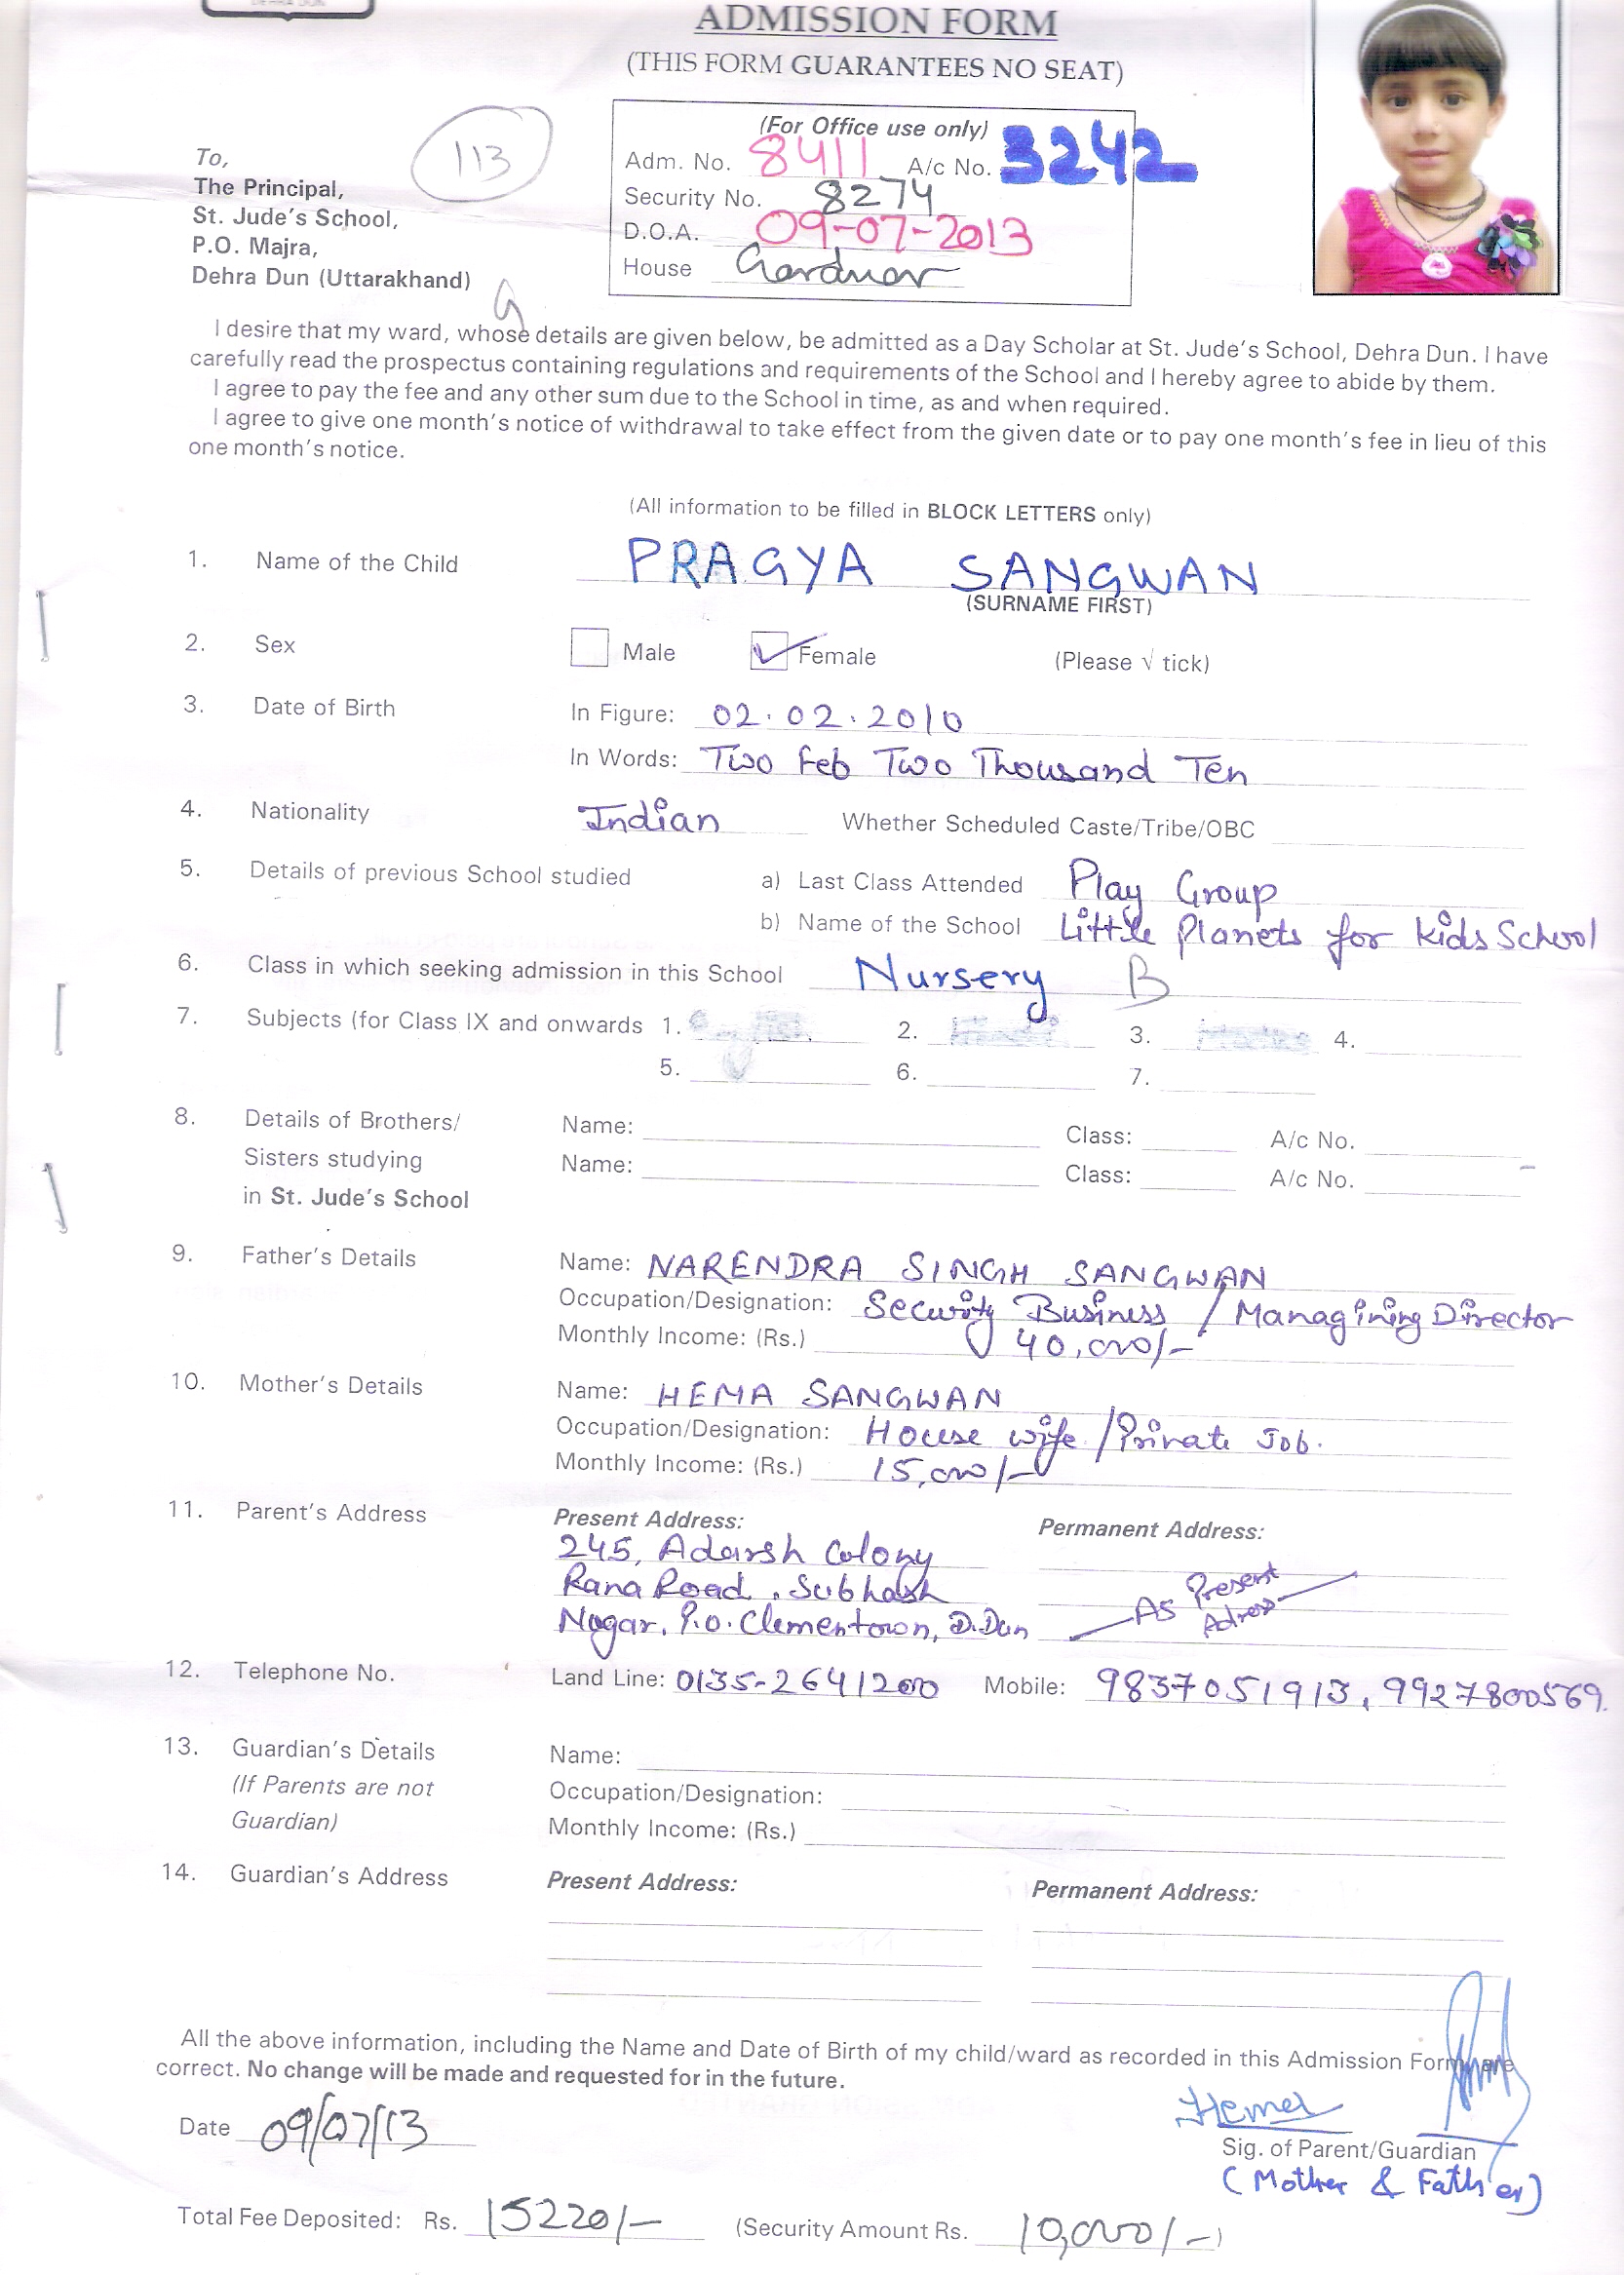 DEHRA DUN
ADMISSION FORM
(THIS FORM GUARANTEES NO SEAT)
113
(For Office use only)
Adm. No. 8411 A/c No. 3242
Security No. 8274
D.O.A. 09-07-2013
House Gardnar
To,
The Principal,
St. Jude's School,
P.O. Majra,
Dehra Dun (Uttarakhand)
G
I desire that my ward, whose details are given below, be admitted as a Day Scholar at St. Jude's School, Dehra Dun. I have
carefully read the prospectus containing regulations and requirements of the School and I hereby agree to abide by them.
I agree to pay the fee and any other sum due to the School in time, as and when required.
I agree to give one month's notice of withdrawal to take effect from the given date or to pay one month's fee in lieu of this
one month's notice.
(All information to be filled in BLOCK LETTERS only)
1. Name of the Child PRAGYA SANGWAN
(SURNAME FIRST)
2. Sex Male Female (Please √ tick)
3. Date of Birth In Figure: 02.02.2010
In Words: Two Feb Two Thousand Ten
4. Nationality Indian Whether Scheduled Caste/Tribe/OBC
5. Details of previous School studied a) Last Class Attended Play Group
b) Name of the School Little Planets for Kids School
6. Class in which seeking admission in this School Nursery B
7. Subjects (for Class IX and onwards 1. 2. 3. 4.
5. 6. 7.
8. Details of Brothers/ Name: Class: A/c No.
Sisters studying Name: Class: A/c No.
in St. Jude's School
9. Father's Details Name: NARENDRA SINGH SANGWAN
Occupation/Designation: Security Business / Managining Director
Monthly Income: (Rs.) 40,000/-
10. Mother's Details Name: HEMA SANGWAN
Occupation/Designation: House wife/Private Job.
Monthly Income: (Rs.) 15,000/-
11. Parent's Address Present Address: Permanent Address:
245, Adarsh Colony
Rana Road, Subhash As Present
Nagar, P.O. Clementown, D.Dun Adress
12. Telephone No. Land Line: 0135-2641200 Mobile: 9837051913, 9927800569.
13. Guardian's Details Name:
(If Parents are not Occupation/Designation:
Guardian) Monthly Income: (Rs.)
14. Guardian's Address Present Address: Permanent Address:
All the above information, including the Name and Date of Birth of my child/ward as recorded in this Admission Form are
correct. No change will be made and requested for in the future.
Date 09/07/13 Hema
Sig. of Parent/Guardian
(Mother & Father)
Total Fee Deposited: Rs. 15220/- (Security Amount Rs. 10,000/-)